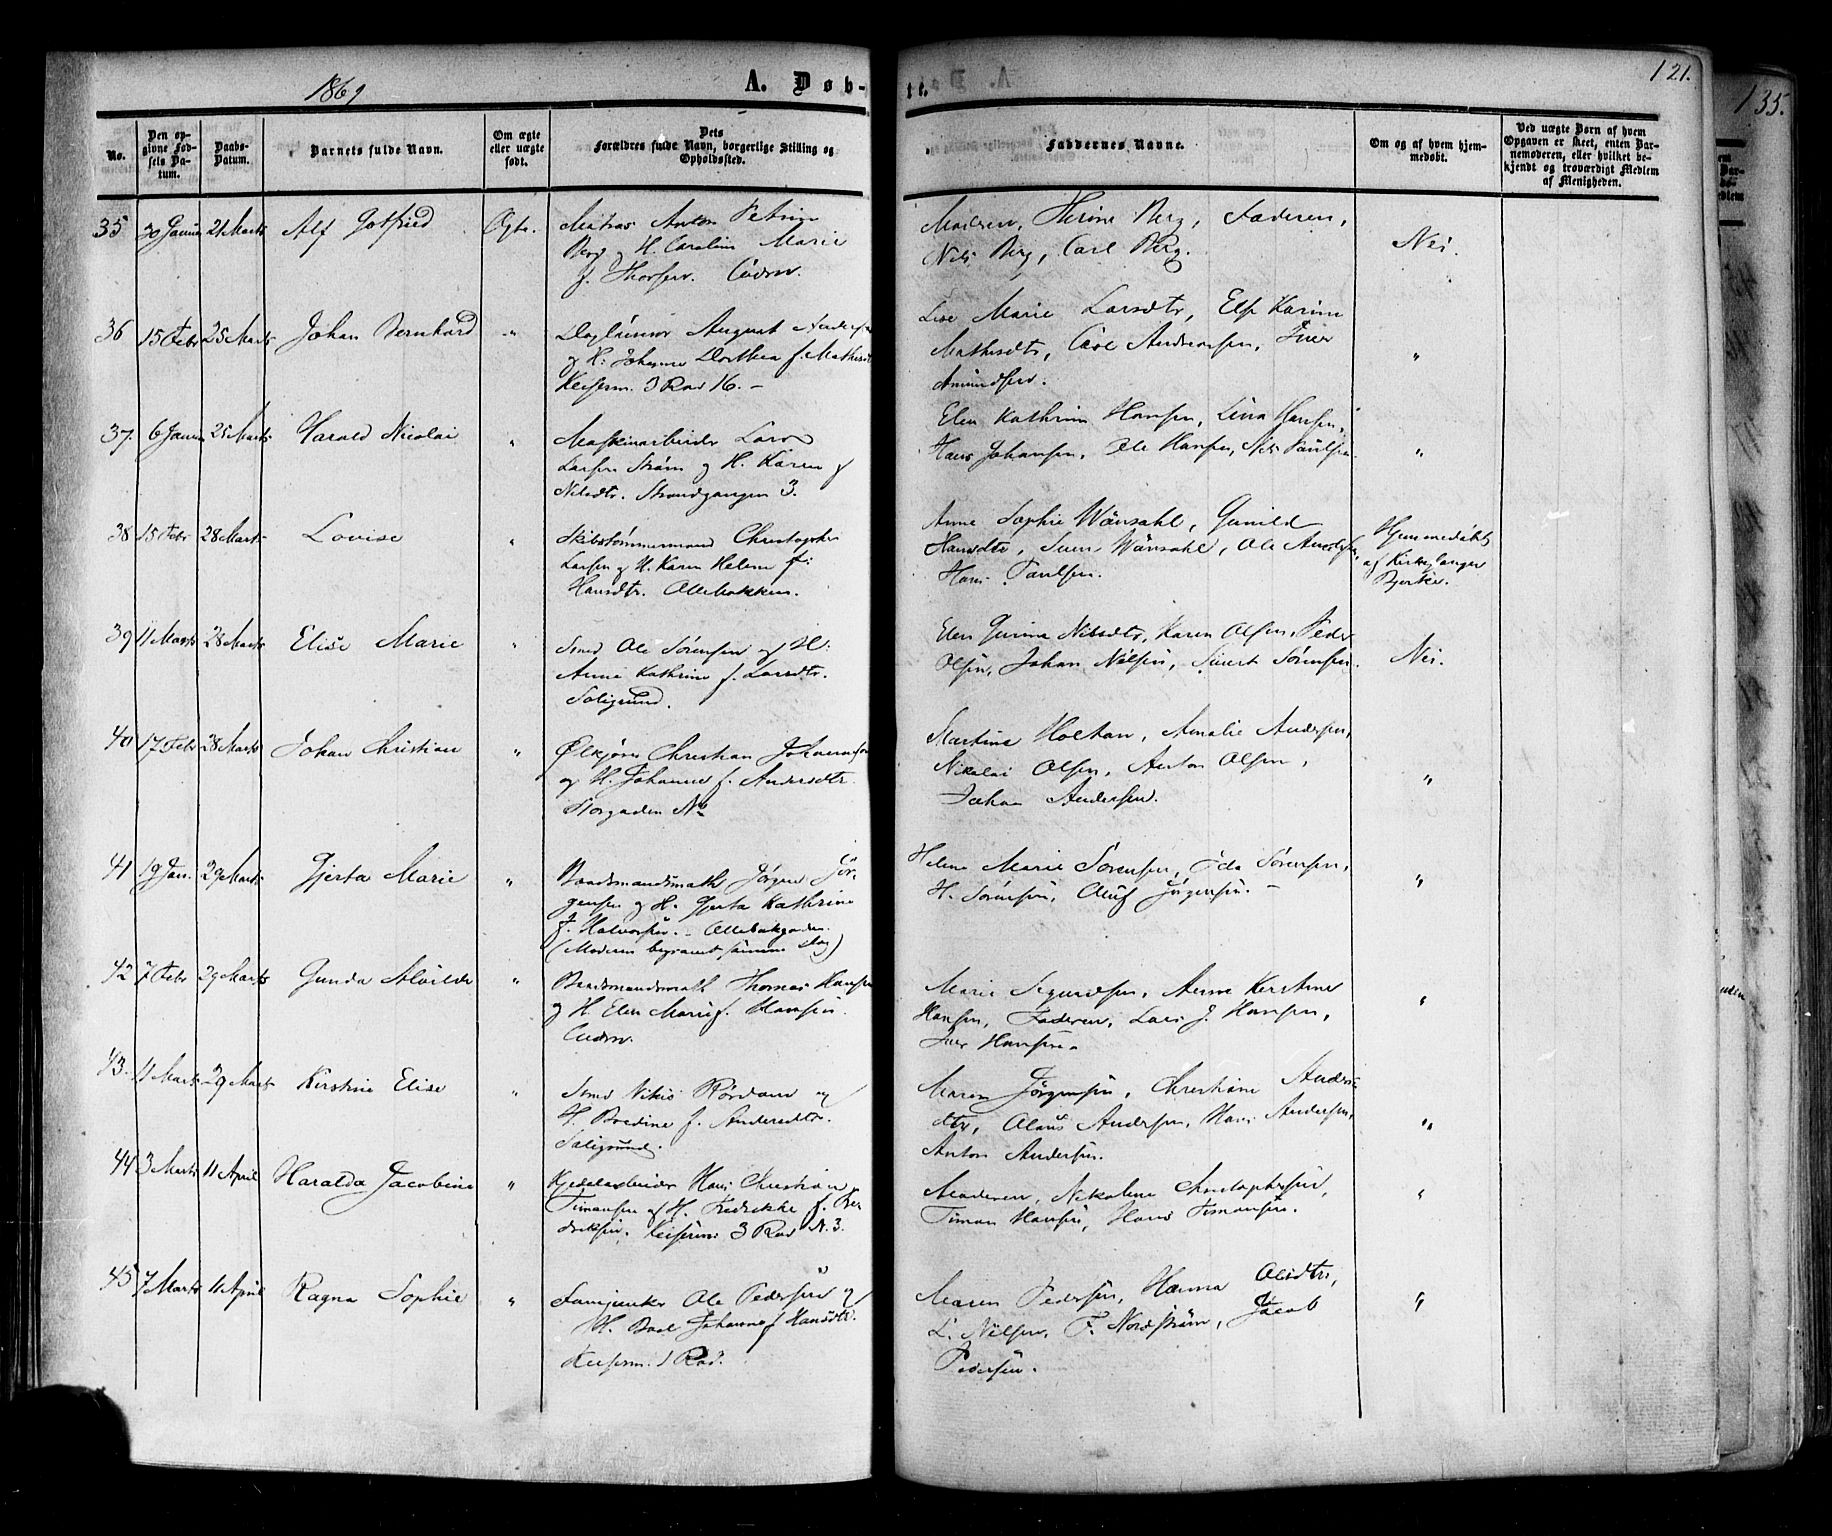 1869
A. Døb-
te.
121.
135.
No.
Den op-
givne Fød-
sels Da-
tum.
Daabs-
Datum.
Barnets fulde Navn.
Om ægte
eller uægte
født.
Dets
Forældres fulde Navn, borgerlige Stilling og
Opholdssted.
Faddernes Navne.
Om og af hvem hjem-
medøbt.
Ved uægte Børn af hvem
Opgaven er skeet, enten Bar-
nemoderen, eller hvilket be-
kjendt og troværdigt Medlem
af Menigheden.
35 30 Januar 21 Marts Alf Gotfried Ægte.
Matros Anton Petrin
Berg og H. Caroline Marie
f. Thorsen.
Moderen, Berg, Faderen,
Nils Berg, Carl Berg.
Nei.
36 15 Febr 25 Marts Johan Bernhard "
Daglönner August Anders
og H. Johanne Dorthea f. Mathisdt
Keiserm. 3 Rad 16. –
Lise Marie Larsdtr, Else Karine
Mathisdtr, Carl Andreassen, Iver
Amundsen.
"
37. 6 Januar 25 Marts Harald Nicolai "
Maskinarbeider Lars
Larsen Strøm og H. Karen f
Nilsdtr. Strandgangen 3.
Elen Kathrine Hansen, Lina Hansen,
Hans Johansen, Ole Hansen, Nils Paulsen.
"
38 15 Febr 28 Marts Lovise "
Skibstømmermand Christopher
Larsen og H. Karen Helene f:
Hansdtr. Ollebakken.
Anne Sophie Wänsahl, Gunild
Hansdtr, Svens Wänsahl, Ole Andersen,
Hans Paulsen.
Hjemmedöbt
af Kirkesanger
Bjerke.
39 11 Marts 28 Marts Elise Marie "
Smed Ole Sørensen og H:
Anne Kathrine f. Larsdtr.
Saligsund.
Elen Gurine Nilsdtr, Karen Olsen, Peder
Olsen, Johan Nilsen, Sivert Sørensen.
Nei.
40 17 Febr 28 Marts Johan Christian "
Ølkjører Christian Johannesen
og H. Johanne f. Andersdtr.
Storgaden No
Martine Holtan, Amalie Andersen,
Nikolai Olsen, Anton Olsen,
Johan Andersen.
"
41 19 Jan. 29 Marts Gjerta Marie "
Baadsmandsmath Jörgen Jör-
gensen og H. Gjerta Kathrine
f. Halvorsen. – Ollebakgaden.
(Moderen begravet samme Dag)
Helene Marie Sørensen, Oda Sørensen,
H. Sørensen, Oluf Jörgensen. –
"
42 7 Febr 29 Marts Gunda Alvilde "
Baadsmandsmath Thomas Hansen
og H Elen Marie f. Hansen.
Marie Sigurdsen, Anne Kerstine
Hansen, Faderen, Lars J. Hansen,
Iver Hansen.
"
43. 11 Marts 29 Marts Kirstine Elise "
Smed Nikis Rørdam og
H. Bredine f. Andersdtr.
Saligsund.
Maren Jörgensen, Christiane Anders
dtr, Olaus Andersen, Hans Andersen,
Anton Andersen.
"
44 3 Marts 11 April Haralda Jacobine "
Kjedelarbeider Hans Christian
Timansen og H. Fredrikke f. Fre
driksen. Keiserm: 3 Rad N. 3.
Moderen, Nikoline Christophersen,
Timan Hansen, Hans Timansen.
"
45 7 Marts 11 April Ragna Sophie "
Fanejunker Ole Pedersen og
H. Boel Johanne f Hansdtr.
Keiserm. 1 Rad.
Maren Pedersen, Hanna Olsdtr,
L. Nilsen, F. Nordstrøm, Jacob
Pedersen.
"